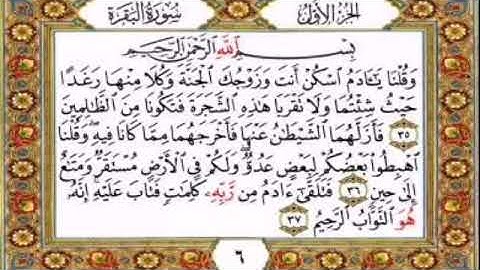 الجزء الأول
سورة البقرة
بِسْمِ اللَّهِ الرَّحْمَٰنِ الرَّحِيمِ
وَقُلْنَا يَا آدَمُ اسْكُنْ أَنتَ وَزَوْجُكَ الْجَنَّةَ وَكُلَا مِنْهَا رَغَدًا
حَيْثُ شِئْتُمَا وَلَا تَقْرَبَا هَٰذِهِ الشَّجَرَةَ فَتَكُونَا مِنَ الظَّالِمِينَ
٣٥ فَأَزَلَّهُمَا الشَّيْطَانُ عَنْهَا فَأَخْرَجَهُمَا مِمَّا كَانَا فِيهِ وَقُلْنَا
اهْبِطُوا بَعْضُكُمْ لِبَعْضٍ عَدُوٌّ وَلَكُمْ فِي الْأَرْضِ مُسْتَقَرٌّ وَمَتَاعٌ
إِلَىٰ حِينٍ ٣٦ فَتَلَقَّىٰ آدَمُ مِن رَّبِّهِ كَلِمَاتٍ فَتَابَ عَلَيْهِ إِنَّهُ
هُوَ التَّوَّابُ الرَّحِيمُ ٣٧
٦